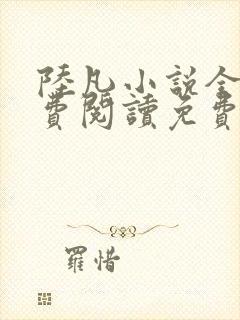 陸凡小說全
費閱讀免費
羅惜